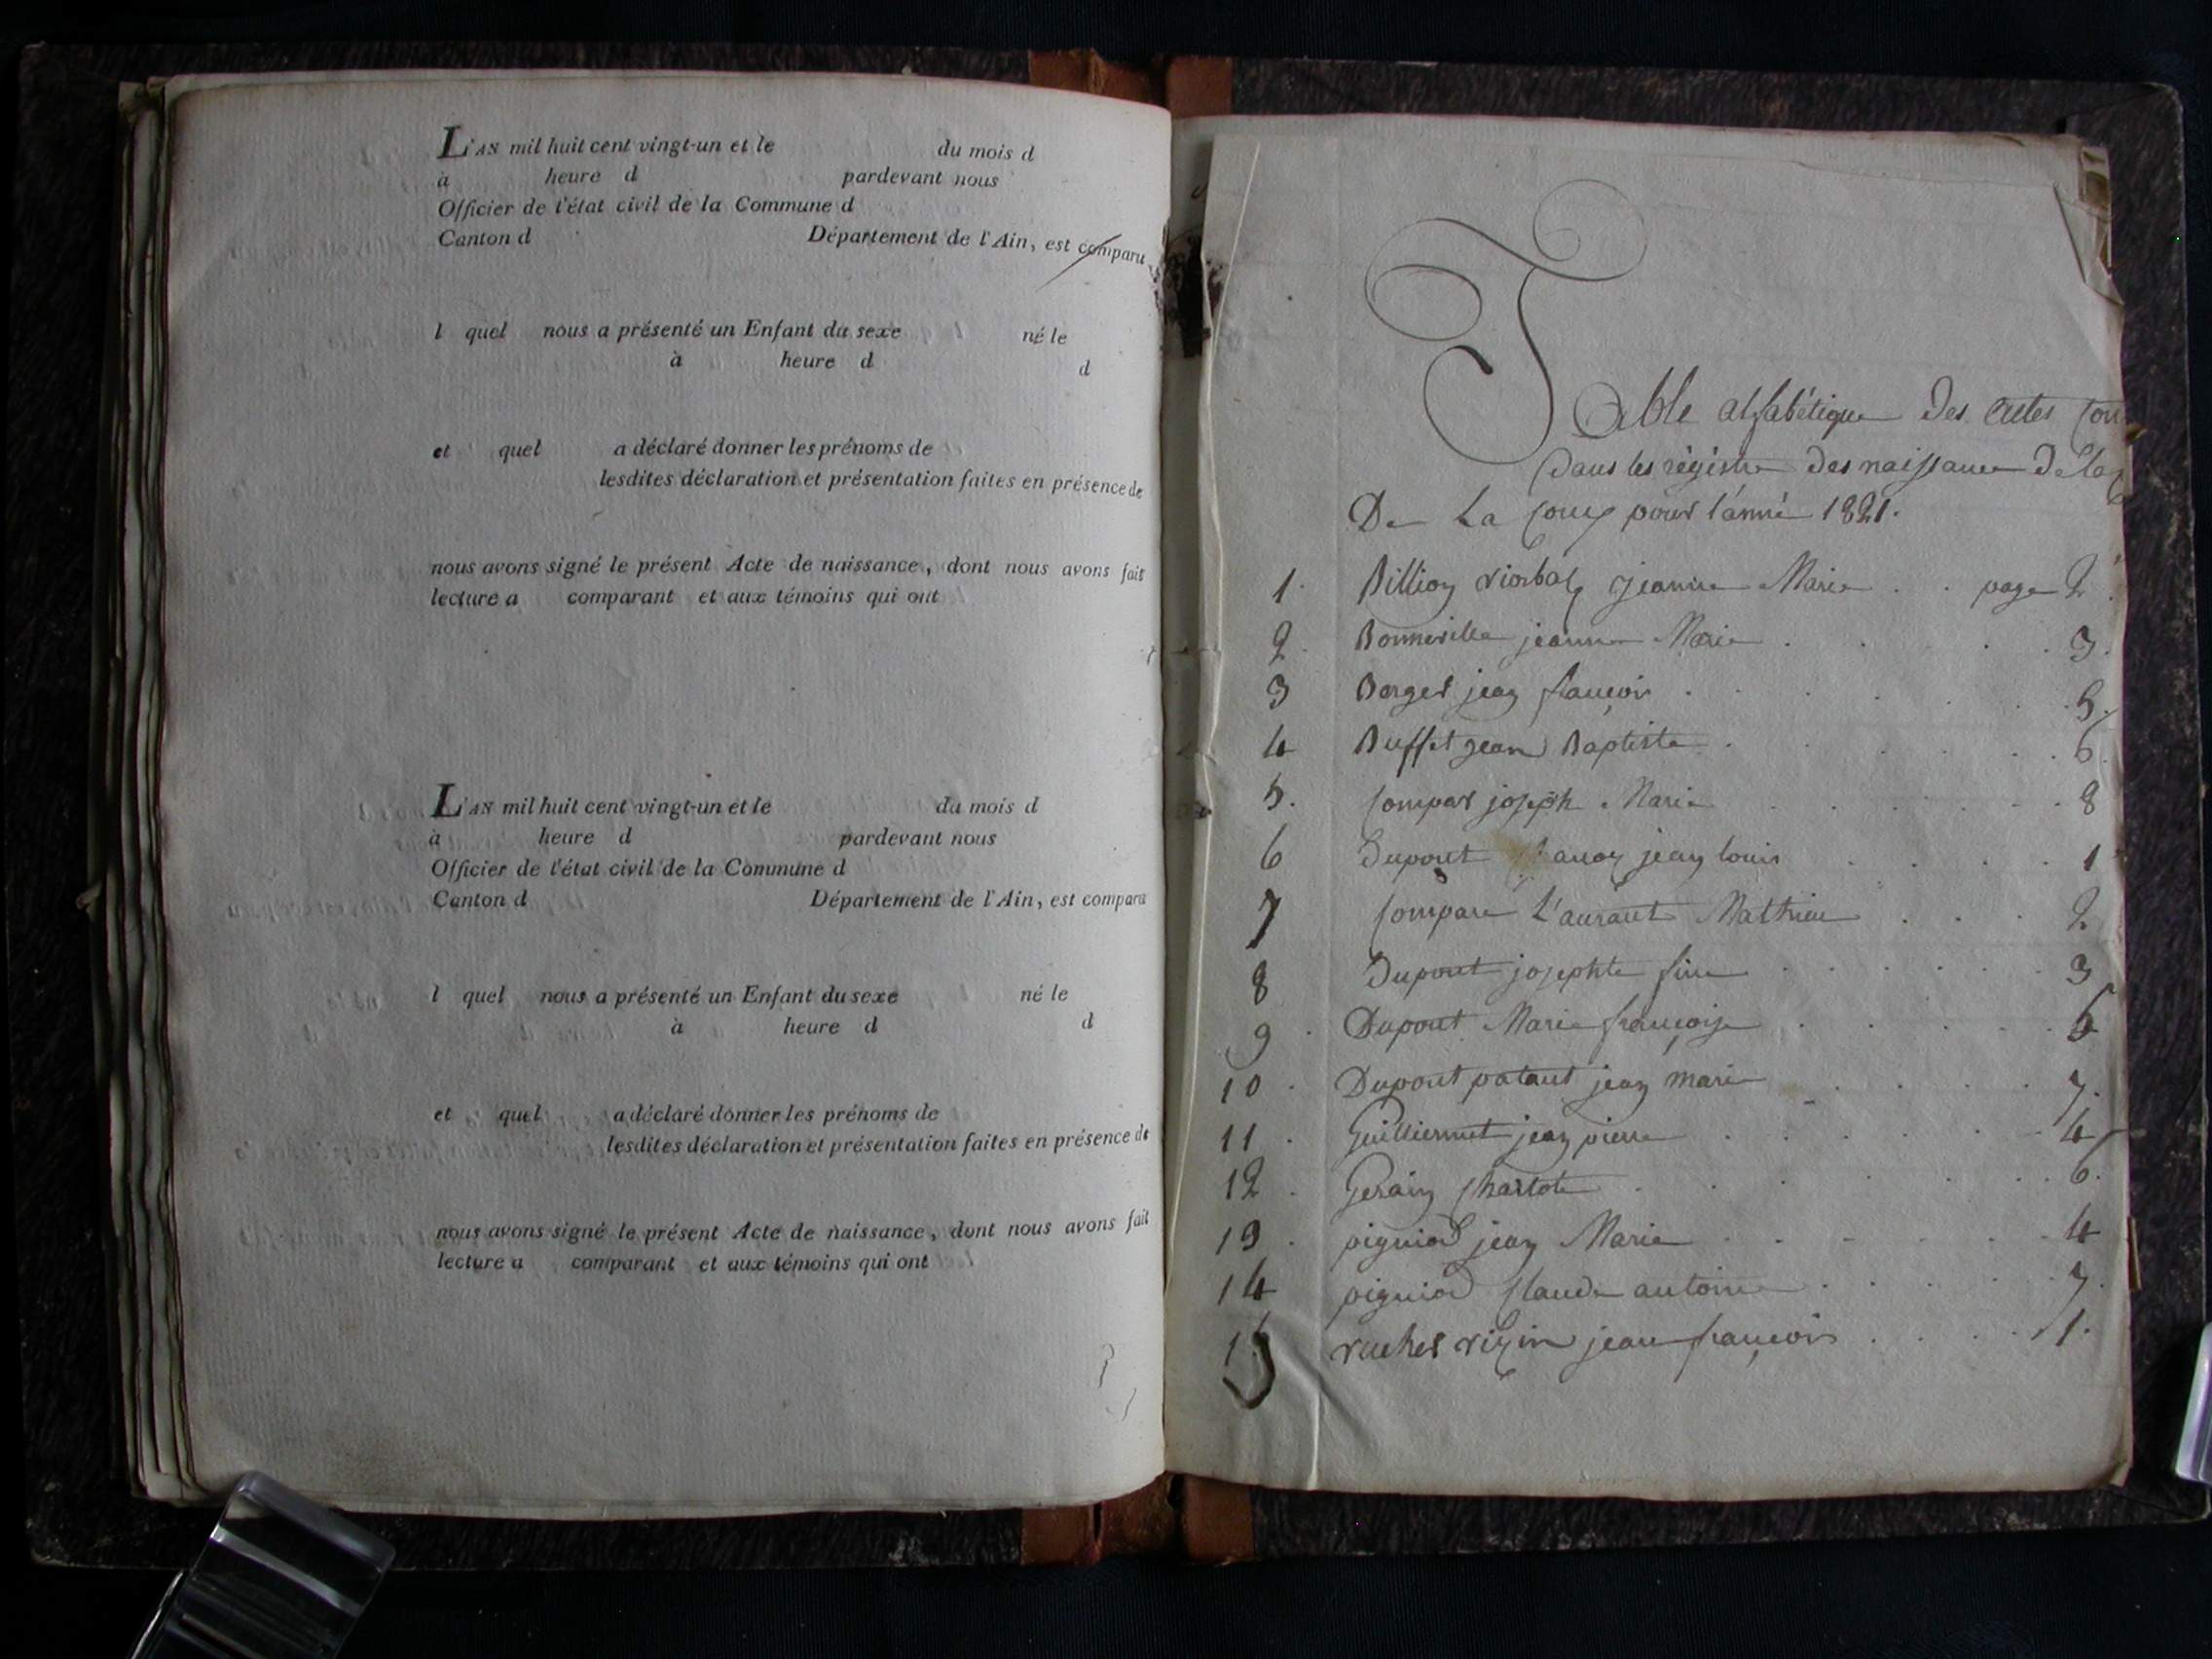 L'AN mil huit cent vingt-un et le du mois d
à heure d pardevant nous
Officier de l'état civil de la Commune d
Canton d Département de l'Ain, est comparu
l quel nous a présenté un Enfant du sexe né le
à heure d d
et quel a déclaré donner les prénoms de
lesdites déclaration et présentation faites en présence de
nous avons signé le présent Acte de naissance, dont nous avons fait
lecture a comparant et aux témoins qui ont
L'AN mil huit cent vingt-un et le du mois d
à heure d pardevant nous
Officier de l'état civil de la Commune d
Canton d Département de l'Ain, est comparu
l quel nous a présenté un Enfant du sexe né le
à heure d d
et quel a déclaré donner les prénoms de
lesdites déclaration et présentation faites en présence de
nous avons signé le présent Acte de naissance, dont nous avons fait
lecture a comparant et aux témoins qui ont
Table alfabétique des actes con
dans les régistre des naissance de la
De La Coux pour l'anné 1821.
1. Billion jeanne Marie . . page 2
2. Bonneville jeanne Marie . . . . 3.
3 Berger jean françois . . . . 5.
4 Buffet jean Baptiste . . . . 6.
5. Compar joseph Marie . . . . 8
6 Dupont jean louis . . . . 1
7 Compare L'aurant Mathieu . . . 2
8 Dupont josephte fine . . . . 3
9 . Dupont Marie françoise . . . . 5
10 . Dupont patant jean marie . . . . 7.
11 . Guilliermet jean pierre . . . . 4
12 . Gerain Charlote . . . . 6.
13 . pigniod jean Marie . . . . 4
14 pigniod Claude antoine . . . . 7.
15 vuher vizin jean françois . . . . 1.